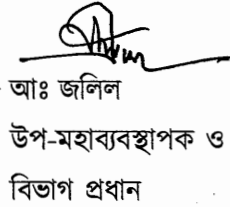 আঃ জলিল
উপ-মহাব্যবস্থাপক ও
বিভাগ প্রধান